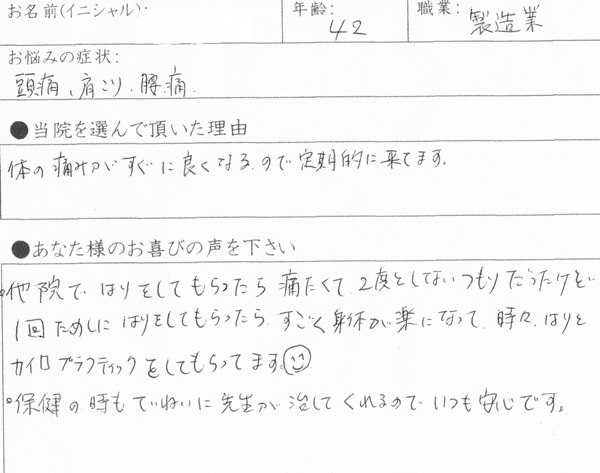 お名前(イニシャル)・
年齢: 42
職業: 製造業
お悩みの症状:
頭痛、肩こり、腰痛
●当院を選んで頂いた理由
体の痛みがすぐに良くなるので定期的に来てます。
●あなた様のお喜びの声を下さい
。他院ではりをしてもらったら痛たくて2度としないつもりだったけど
1回ためしにはりをしてもらったら、すごく身体が楽になって、時々、はりと
カイロプラクティックをしてもらってます。
。保健の時もていねいに先生が治してくれるのでいつも安心です。